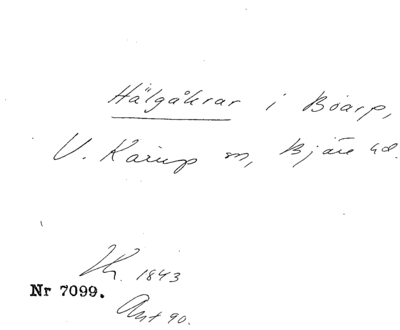 Hälgåkrar i Boarp,
V. Karup sn, Bjäre hd.
Kr. 1843
Nr 7099.
Ant 90.